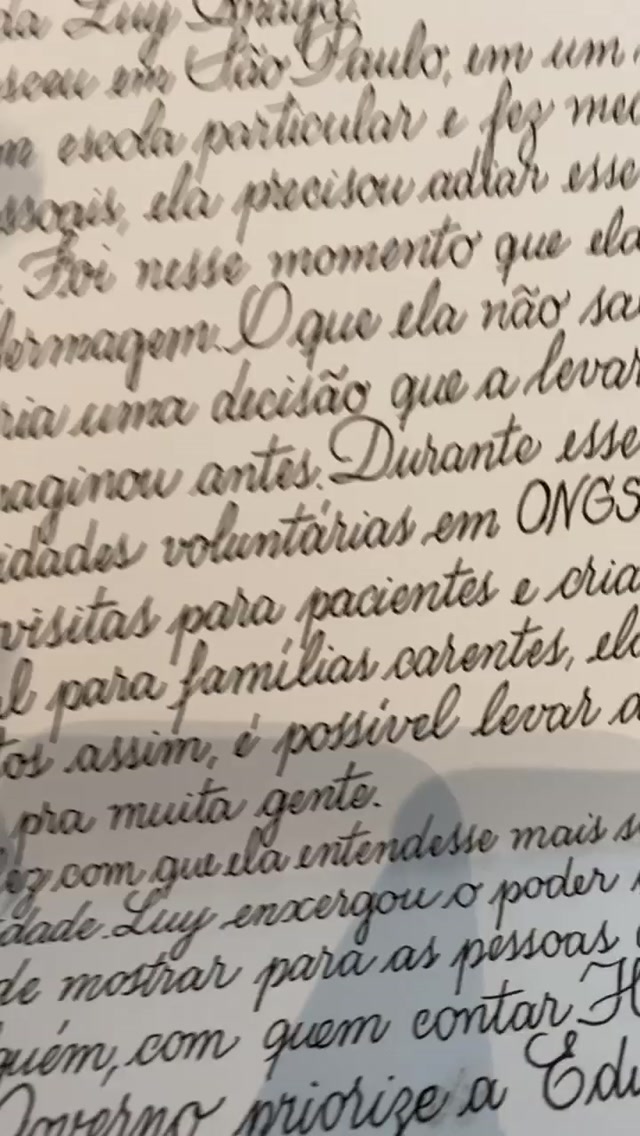 da Luy
sceu em São Paulo, em um
m escola particular e fez med
ssoais, ela precisou adiar esse
. Foi nesse momento que ela
fermagem. O que ela não sa
ria uma decisão que a levar
maginou antes. Durante esse
idades voluntárias em ONGS
visitas para pacientes e cria
l para famílias carentes, ela
tos assim, é possível levar a
pra muita gente.
fez com que ela entendesse mais s
dade. Luy enxergou o poder
de mostrar para as pessoas
guém, com quem contar. H
Governo priorize a Edu